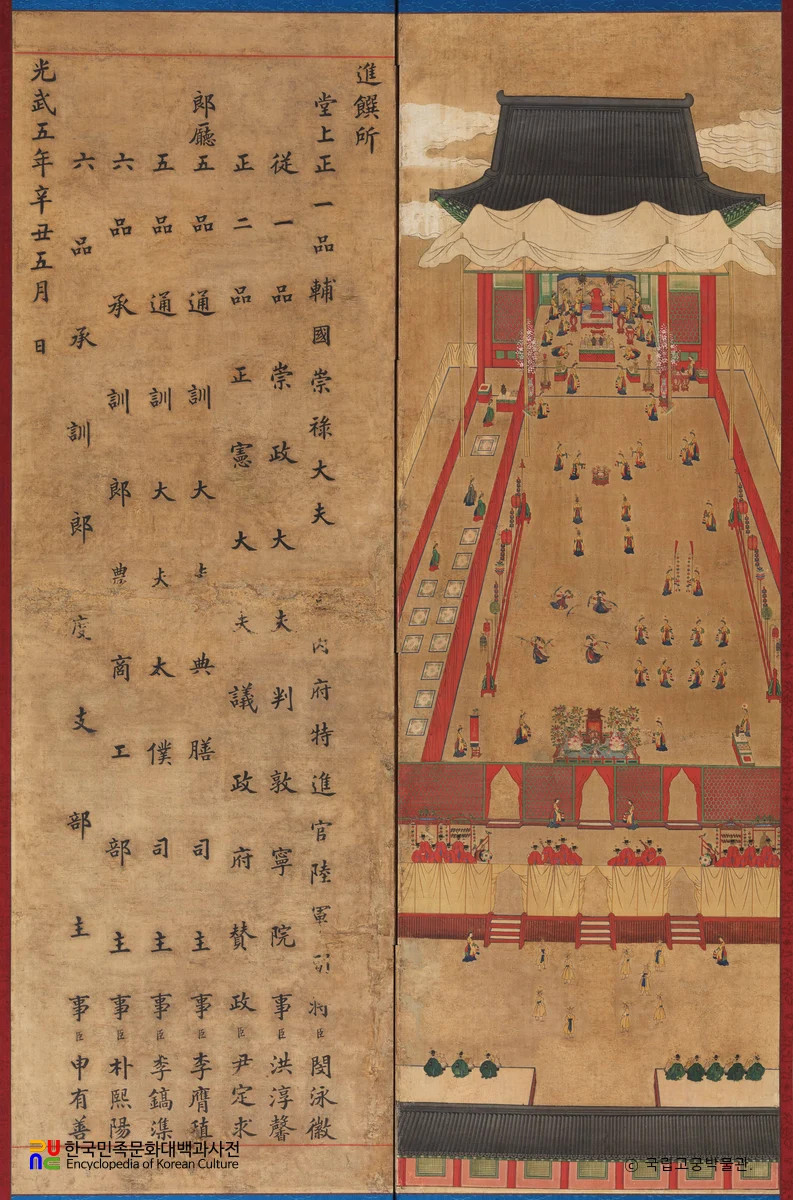 進饌所
堂上正一品輔國崇祿大夫 內府特進官陸軍 將臣閔泳徽
從一品崇政大夫判敦寧院事臣洪淳馨
正二品正憲大夫議政府贊政臣尹定求
郎廳五品通訓大夫典膳司主事臣李膺
五品通訓大夫太僕司主事臣李鎬
六品承訓郎農商工部主事臣朴熙陽
六品承訓郎度支部主事臣申有善
光武五年辛丑五月 日
한국민족문화대백과사전
Encyclopedia of Korean Culture
ⓒ 국립고궁박물관.